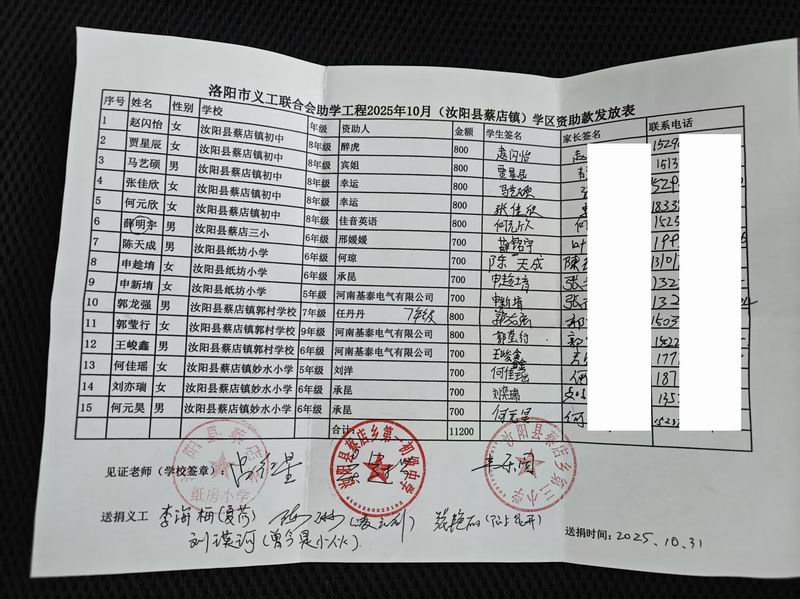 洛阳市义工联合会助学工程2025年10月（汝阳县蔡店镇）学区资助款发放表
序号 姓名 性别 学校 年级 资助人 金额 学生签名 家长签名 联系电话
1 赵闪怡 女 汝阳县蔡店镇初中 8年级 醉虎 800 赵闪怡 赵 1529
2 贾星辰 女 汝阳县蔡店镇初中 8年级 宾姐 800 贾星辰 1513
3 马艺硕 男 汝阳县蔡店镇初中 8年级 幸运 800 马艺硕 529
4 张佳欣 女 汝阳县蔡店镇初中 8年级 幸运 800 张佳欣 1833
5 何元欣 女 汝阳县蔡店镇初中 8年级 佳音英语 800 何元欣 何 1523
6 薛明宇 男 汝阳县蔡店三小 6年级 邢媛媛 700 薛铭宇 199
7 陈天成 男 汝阳县纸坊小学 6年级 何琼 700 陈天成 陈 13101
8 申趁堉 女 汝阳县纸坊小学 6年级 承昆 700 申趁堉 张 132
9 申新堉 女 汝阳县纸坊小学 5年级 河南基泰电气有限公司 700 申新堉 张 132
10 郭龙强 男 汝阳县蔡店镇郭村学校 7年级 任丹丹 7年级 800 郭 1503
11 郭莹行 女 汝阳县蔡店镇郭村学校 9年级 河南基泰电气有限公司 800 郭莹行 1522
12 王峻鑫 男 汝阳县蔡店镇郭村学校 6年级 河南基泰电气有限公司 700 王峻鑫 177
13 何佳瑶 女 汝阳县蔡店镇妙水小学 5年级 刘洋 700 何佳瑶 何 187
14 刘亦瑞 女 汝阳县蔡店镇妙水小学 6年级 承昆 700 刘奕瑞 135
15 何元昊 男 汝阳县蔡店镇妙水小学 6年级 承昆 700 何元昊 何 1523
合计: 11200
见证老师（学校签章）:
汝阳县蔡店 纸房小学
汝阳县蔡店乡第一初级中学
汝阳县蔡店乡第三小学
送捐义工 李海梅(夏荷)
刘瑛珂(曾今是小火)
送捐时间: 2025.10.31